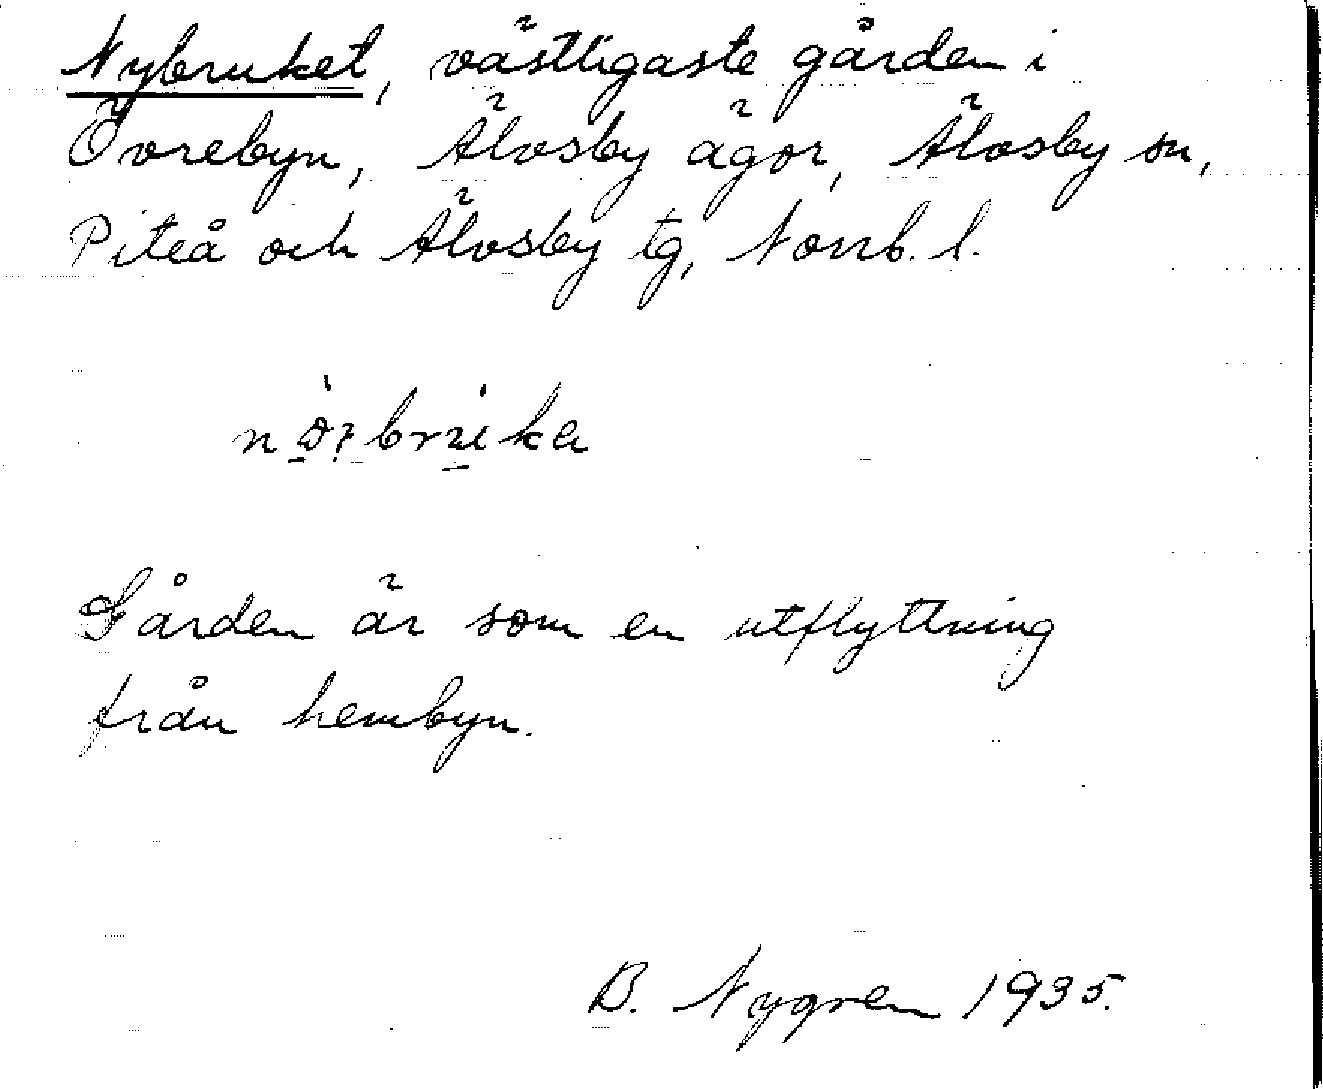 Nybruket, västligaste gården i
Övrebyn, Älvsby ägor, Älvsby sn,
Piteå och Älvsby tg, Norrb. l.
Gården är som en utflyttning
från hembyn.
B. Nygren 1935.